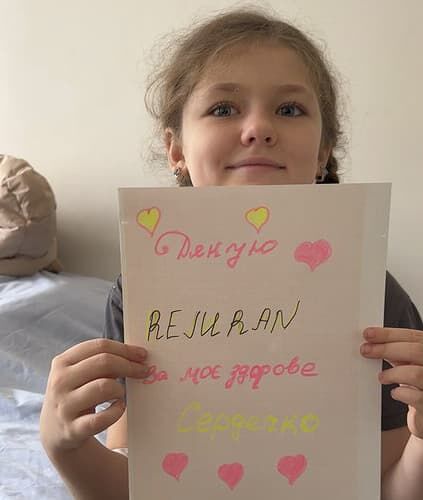 Дякую
REJURAN
За моє здорове
Сердечко